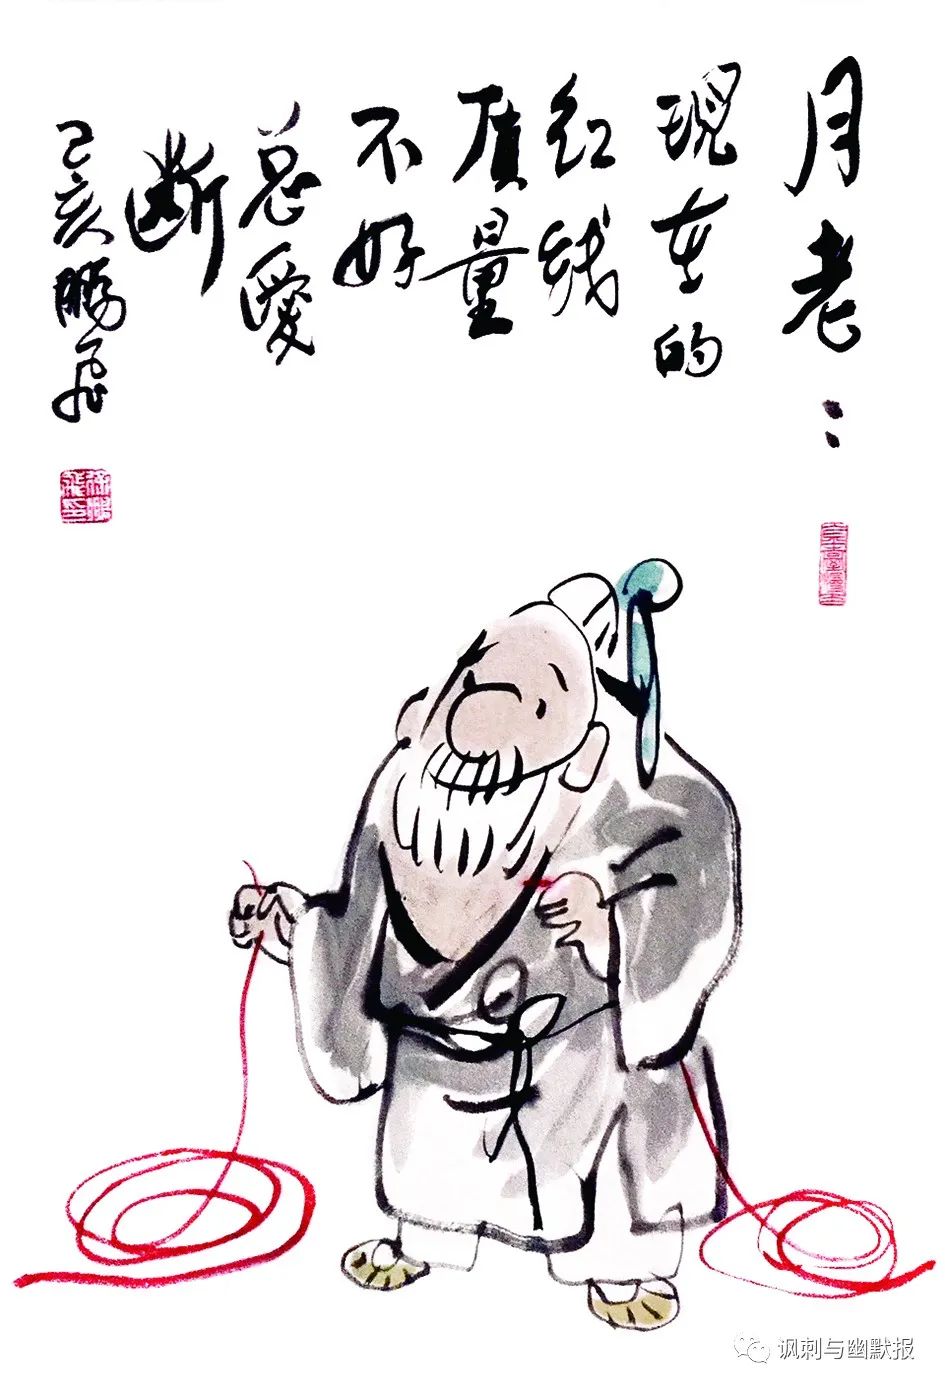 月老：
现在的
红线
质量
不好
总爱
断
己亥鹏飞
讽刺与幽默报